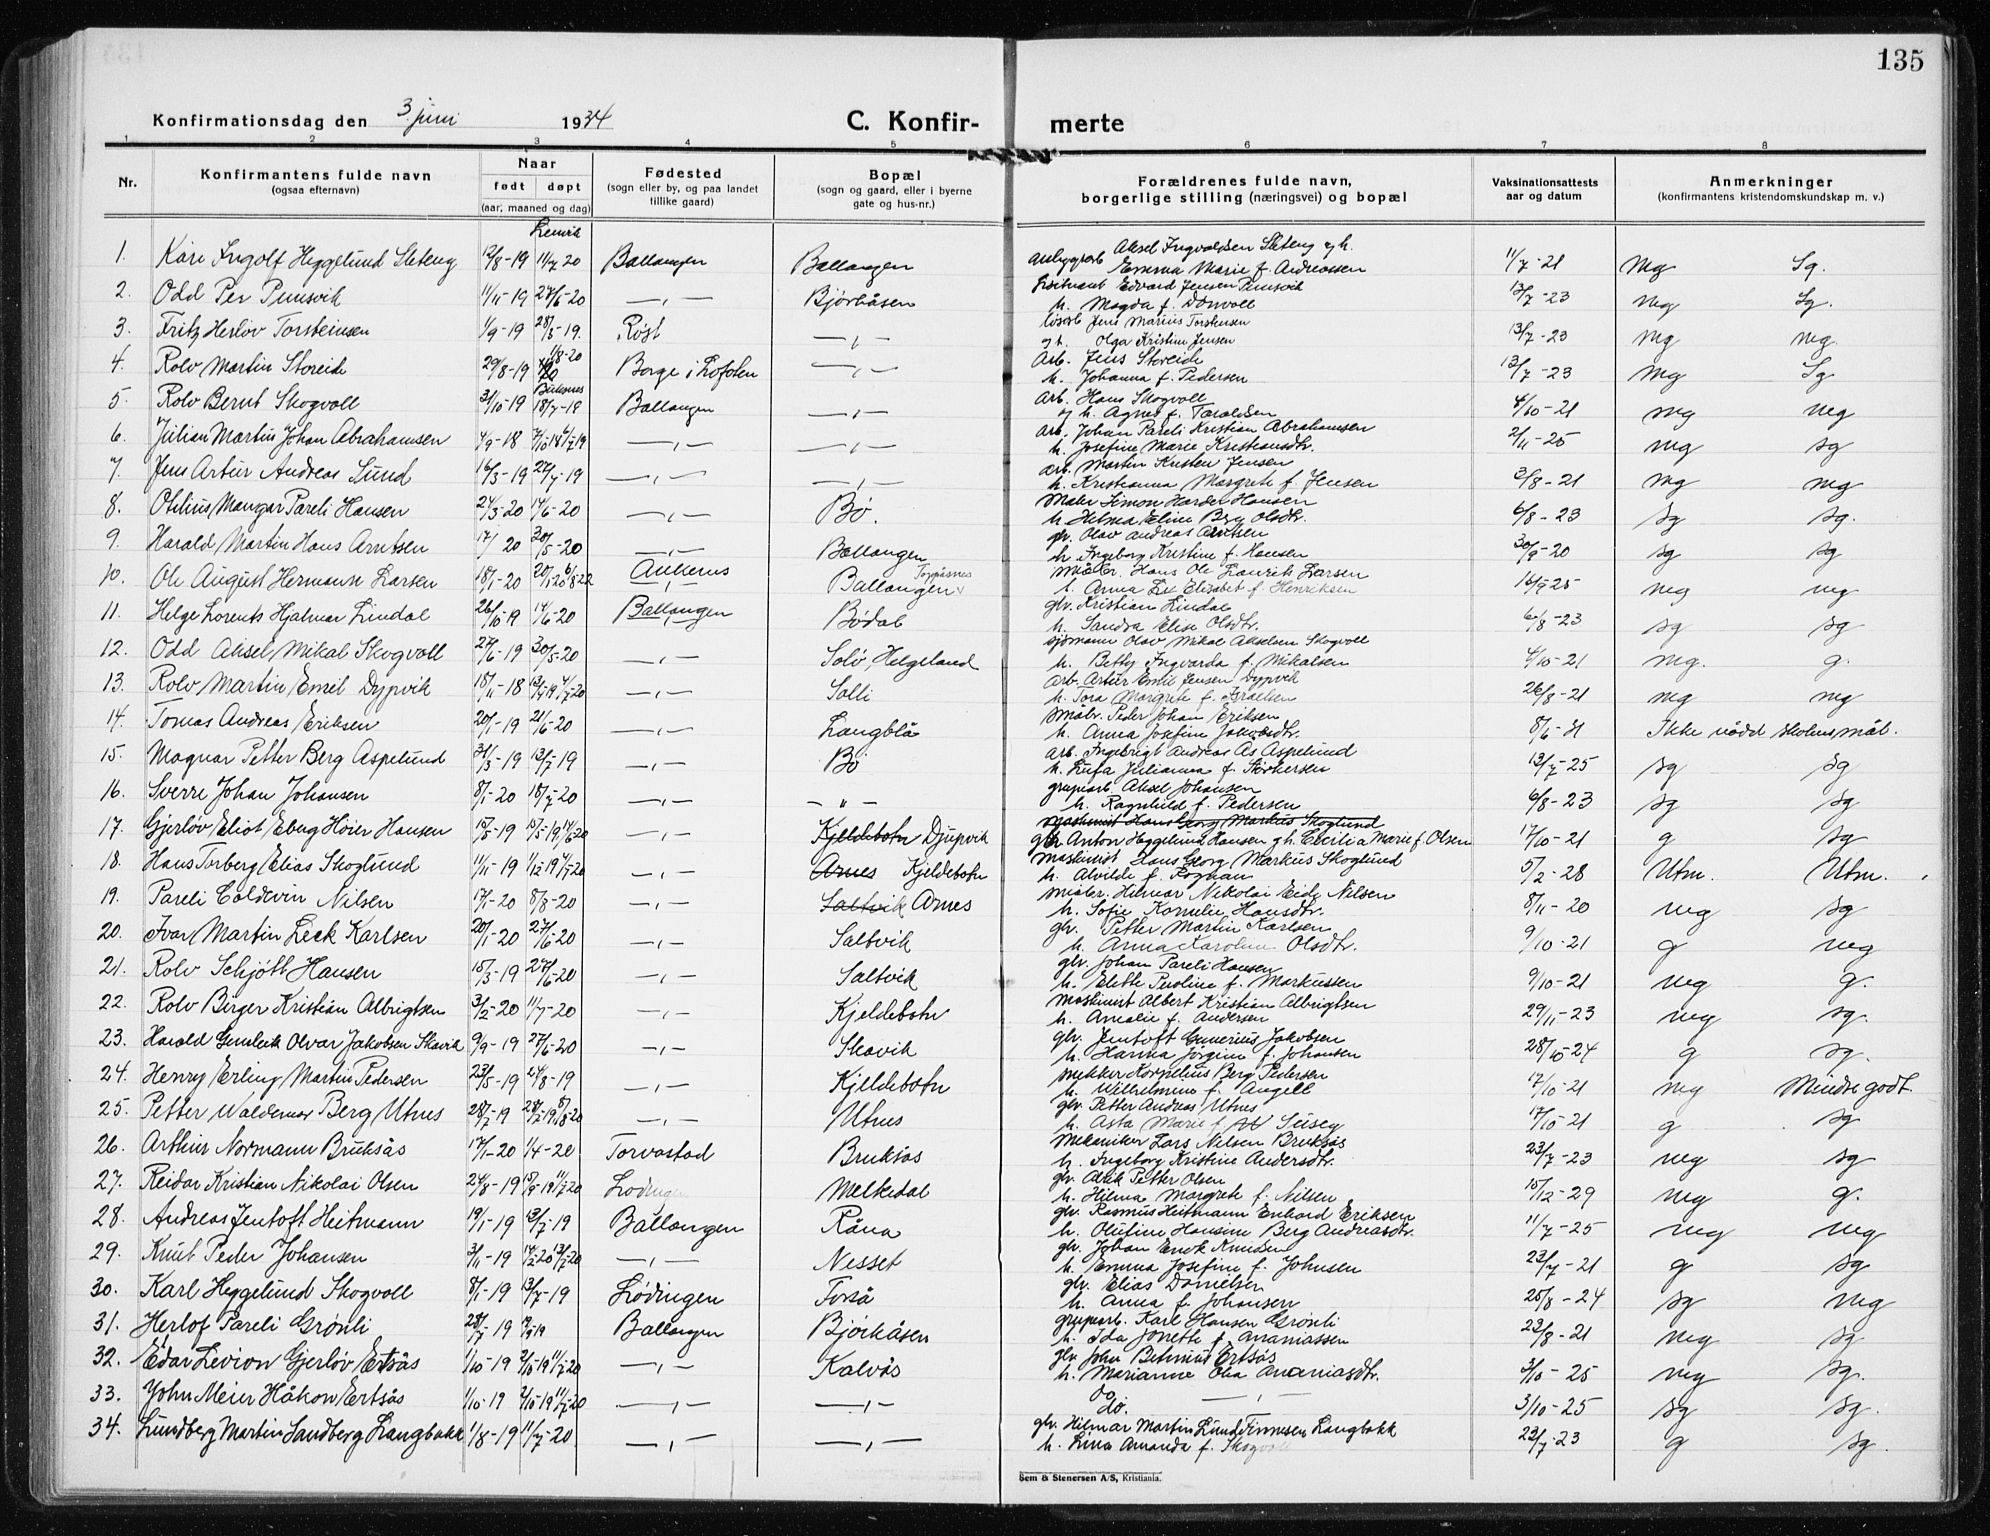 135
Konfirmationsdag den 3 juni 1934 C. Konfir- merte
1 2 3 4 5 6 7 8
Nr.
Konfirmantens fulde navn
(ogsaa efternavn)
Naar
født døpt
(aar, maaned og dag)
Fødested
(sogn eller by, og paa landet
tillike gaard)
Bopæl
(sogn og gaard, eller i byerne
gate og hus-nr.)
Forældrenes fulde navn,
borgerlige stilling (næringsvei) og bopæl
Vaksinationsattests
aar og datum
Anmerkninger
(konfirmantens kristendomskundskap m. v.)
Lenvik
1. Kåre Ingolf Heggelund Sleteng 12/8-19 11/7 20 Ballangen Ballangen Aksel Ingvaldsen Sleteng og h. Emma Marie f. Andreassen 11/7-21 mg Sg.
2. Odd Per Pimsvik 11/11-19 27/6-20 —„— Bjørkåsen Edvard Jensen Pimsvik h. Magda f. Dønvoll 13/7-23 mg Sg.
3. Fritz Herløv Torsteinsen 1/9-19 28/5-19. Røst —„— løsarb Jens Marius Torsteinsen og h. Olga Kristine Jensen 13/7-23 mg mg.
4. Rolv Martin Storeide 29/8-19 1/8-20 Borge i Lofoten —„— Arb. Jens Storeide h. Johanna f. Pedersen 13/7-23 mg Sg
Buksnes
5. Rolv Bernt Skogvoll 31/10-19 18/7-19 Ballangen —„— Arb. Hans Skogvoll og h. Agnes f. Taraldsen 4/10-21 mg mg
6. Julian Martus Johan Abrahamsen 4/9-18 —„— —„— Arb. Johan Pareli Kristian Abrahamsen h. Josefine Marie Kristiansdtr. 2/11-25 mg sg
7. Jens Artur Andreas Sund 16/3-19 27/7-19 —„— —„— Arb. Martin Kristen Jensen h. Kristianna Margrete f. Jensen 3/8-21 mg mg
8. Otilius Mangar Pareli Hansen 24/3-20 14/6-20 —„— Bø. Maler Simon Harder Hansen h. Helma Eline Berg Olsdtr. 6/8-23 sg sg.
9. Harald Martin Hans Arntsen 17/ 20 30/5-20 —„— Ballangen gbr. Olav Andreas Arntsen h. Ingeborg Kristine f. Hansen 30/9-20 sg sg
10. Ole August Hermann Larsen 18/1-20 Ankenes Ballangen Toppåsnes småbr. Hans Ole Laurits Larsen h. Anna Elisabet f. Henriksen 16/9-25 mg mg
11. Helge Lorents Hjalmar Lindal 26/10-19 14/6-20 Ballangen Bødal gbr. Kristian Lindal h. Sandra Elise Olsdtr. 6/8-23 sg sg
12. Odd Aksel Mikal Skogvoll 27/6-19 30/5-20 —„— Solø Helgeland sjømann Olav Mikal Akselsen Skogvoll h. Betty Ingvarda f. Mikalsen 4/10-21 mg. g.
13. Rolv Martin Emil Dypvik 18/11-18 —„— Salti arb. Artur Emil Jensen Dypvik h. Tora Margrete f. Israelsen 26/8-21 mg mg
14. Tomas Andreas Eriksen 20/1-19 21/6-20 —„— Langblå småbr. Peder Johan Eriksen h. Anna Josefine 8/6-31 Ikke nådd skolens mål.
15. Magnar Petter Berg Aspelund 31/3-19 13/7-19 —„— Bø arb. Ingebrigt Andreas As Aspelund h. Lufa Julianna f. Størkersen 13/7-25 sg sg
16. Sverre Johan Johansen 8/1-20 18/7-20 —„— -„- grubearb. Aksel Johansen h. Ragnhild f. Pedersen 6/8-23 sg sg
maskinist Hans Georg Markus Skoglund
17. Gjerløv Eliot Eberg Høier Hansen 15/5-19 —„— Kjeldebotn Djupvik gbr Anton Heggelund Hansen og h. Cecilia Marie f. Olsen 17/10-21 g sg
18. Hans Torberg Elias Skoglund 11/11-19 —„— Arnes Kjeldebotn maskinist Hans Georg Markus Skoglund h. Alvilde f. Rognan 5/2-28 Utm. Utm.
19. Pareli Coldevin Nilsen 17/1-20 8/8-20 —„— Saltvik Arnes småbr. Hilmar Nikolai Eide Nilsen h. Sofie Kornelie Hansdtr. 8/11-20 mg sg
20. Ivar Martin Leek Karlsen 20/1-20 27/6-20 —„— Saltvik gbr. Petter Martin Karlsen h. Anna Karoline Olsdtr. 9/10-21 g mg
21. Rolv Schjøtt Hansen 15/3-19 27/6-20 —„— Saltvik gbr. Johan Pareli Hansen h. Elette Pauline f. Markussen 9/10-21 mg g.
22. Rolv Birger Kristian Albrigtsen 3/2-20 11/7-20 —„— Kjeldebotn maskinist Albert Kristian Albrigtsen h. Amalie f. Andersen 29/11-23 mg sg.
23. Harald Gunleik Olvar Jakobsen Skavik 9/9-19 27/6-20 —„— Skavik gbr. Jentoft Gunerius Jakobsen h. Hanna Jørgine f. Johansen 28/10-24 g sg.
24. Henry Erling Martin Pedersen 23/5-19 24/8-19 —„— Kjeldebotn snekker Kornelius Berg Pedersen h. Wilhelmine f. Angell 17/10-21 mg Mindre godt.
25. Petter Waldemar Berg Utnes 28/7-19 —„— Utnes gbr. Petter Andreas Utnes h. Asta Marie f. Seisey 17/10-21 g sg
26. Arthur Normann Bruksås 17/1-20 1/4-20 Torvastad Bruksås Mekaniker Lars Nilsen Bruksås h. Ingeborg Kristine Andersdtr. 23/7-23 mg sg
27. Reidar Kristian Nikolai Olsen 24/8-19 Lødingen Melkedal gbr. Alvik Petter Olsen h. Hilma Margrete f. Nilsen 15/12-29 mg g.
28. Andreas Jentoft Heitmann 19/1-19 13/7-19 Ballangen Råna gbr. Rasmus Heitmann Enhard Eriksen h. Olufine Hansine Berg Andreasdtr. 11/7-25 mg mg
29. Knut Peder Johansen 3/1-19 —„— Nesset gbr. Johan Enok Knudsen h. Emma Josefine f. Johnsen 23/7-21 g sg
30. Karl Heggelund Skogvoll 8/1-19 13/7-19 Lødingen Forså gbr. Elias Danielsen h. Anna f. Johansen 25/8-24 sg mg
31. Herlof Pareli Grønli 28/7-19 Ballangen Bjørkåsen grubearb. Karl Hansen Grønli h. Ida Jonette f. Ananiassen 23/8-21 mg sg
32. Edar Levion Gjerløv Ertsås 1/10-19 —„— Kalvås gbr John Betuel Ertsås h. Marianne Olea Ananiasdtr. 3/10-25 mg sg.
33. John Meier Håkon Ertsås 1/10-19 —„— —„— do do. —„— 3/10-25 sg sg
34. Lundberg Martin Sandberg Langbakk 1/8-19 11/7-20 —„— —„— gbr. Hilmar Martin Lund Finnesen Langbakk h. Lina Amanda f. Skogvoll 23/7-23 g sg.
Sem & Stenersen A/S, Kristiania.